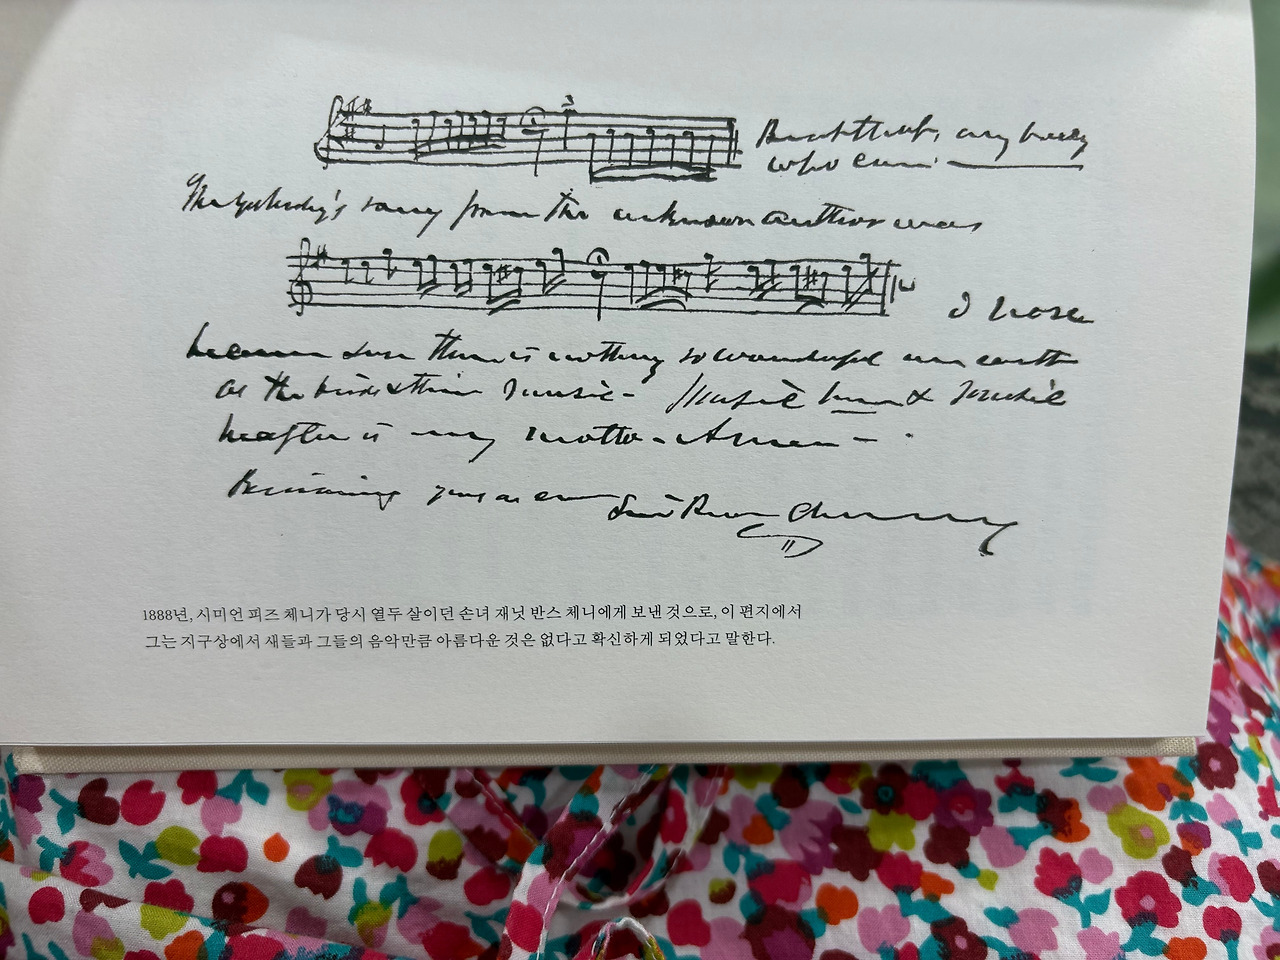 any body
who can.
The yesterday's song from the unknown author was
I have
become sure there is nothing so wonderful on earth
as the birds & their music - Music here & Music
is my motto - Amen -
yours as ever
1888년, 시미언 피즈 체니가 당시 열두 살이던 손녀 재닛 반스 체니에게 보낸 것으로, 이 편지에서
그는 지구상에서 새들과 그들의 음악만큼 아름다운 것은 없다고 확신하게 되었다고 말한다.